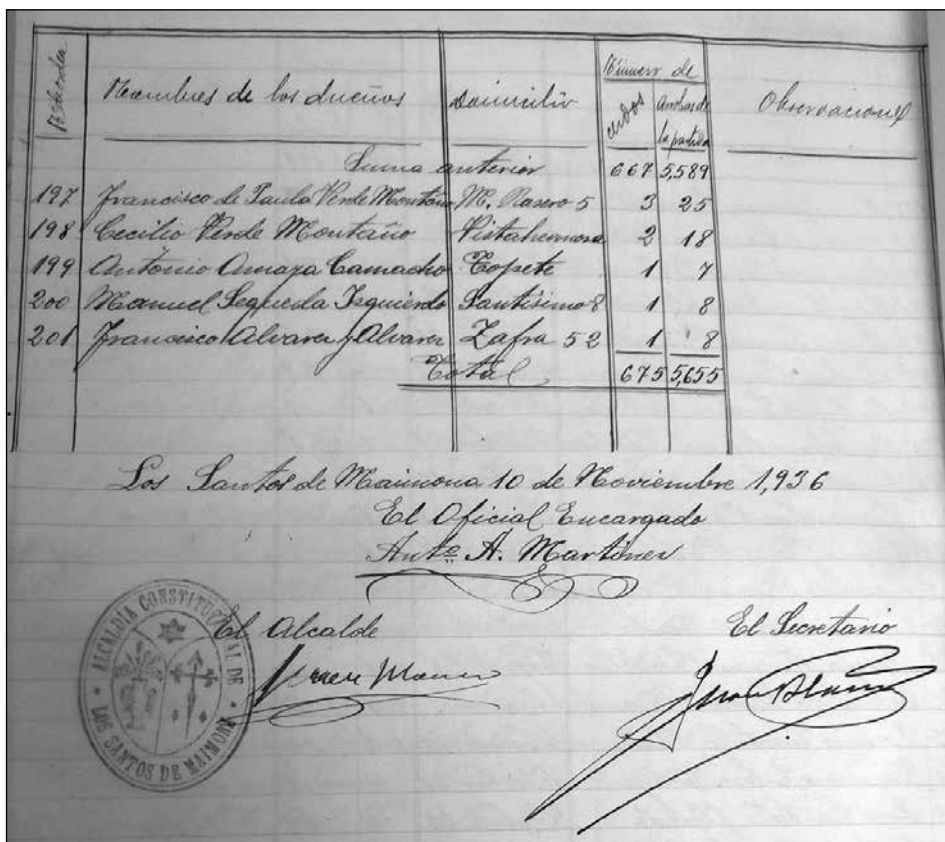 Nº de orden Nombres de los dueños Domicilio Número de Observaciones
cerdos Arrobas de la partida
Suma anterior 667 5,589
197 Francisco de Paula Verde Montaño M. Rasero 5 3 25
198 Cecilio Verde Montaño Vistahermosa 2 18
199 Antonio Amaya Camacho Topete 1 7
200 Manuel Segueda Izquierdo Santísimo 8 1 8
201 Francisco Alvarez y Alvarez Zafra 52 1 8
Total 675 5,655
Los Santos de Maimona 10 de Noviembre 1,936
El Oficial Encargado
Antº A. Martinez
El Alcalde El Secretario
Juan Blanco
ALCALDIA CONSTITUCIONAL DE
LOS SANTOS DE MAIMONA